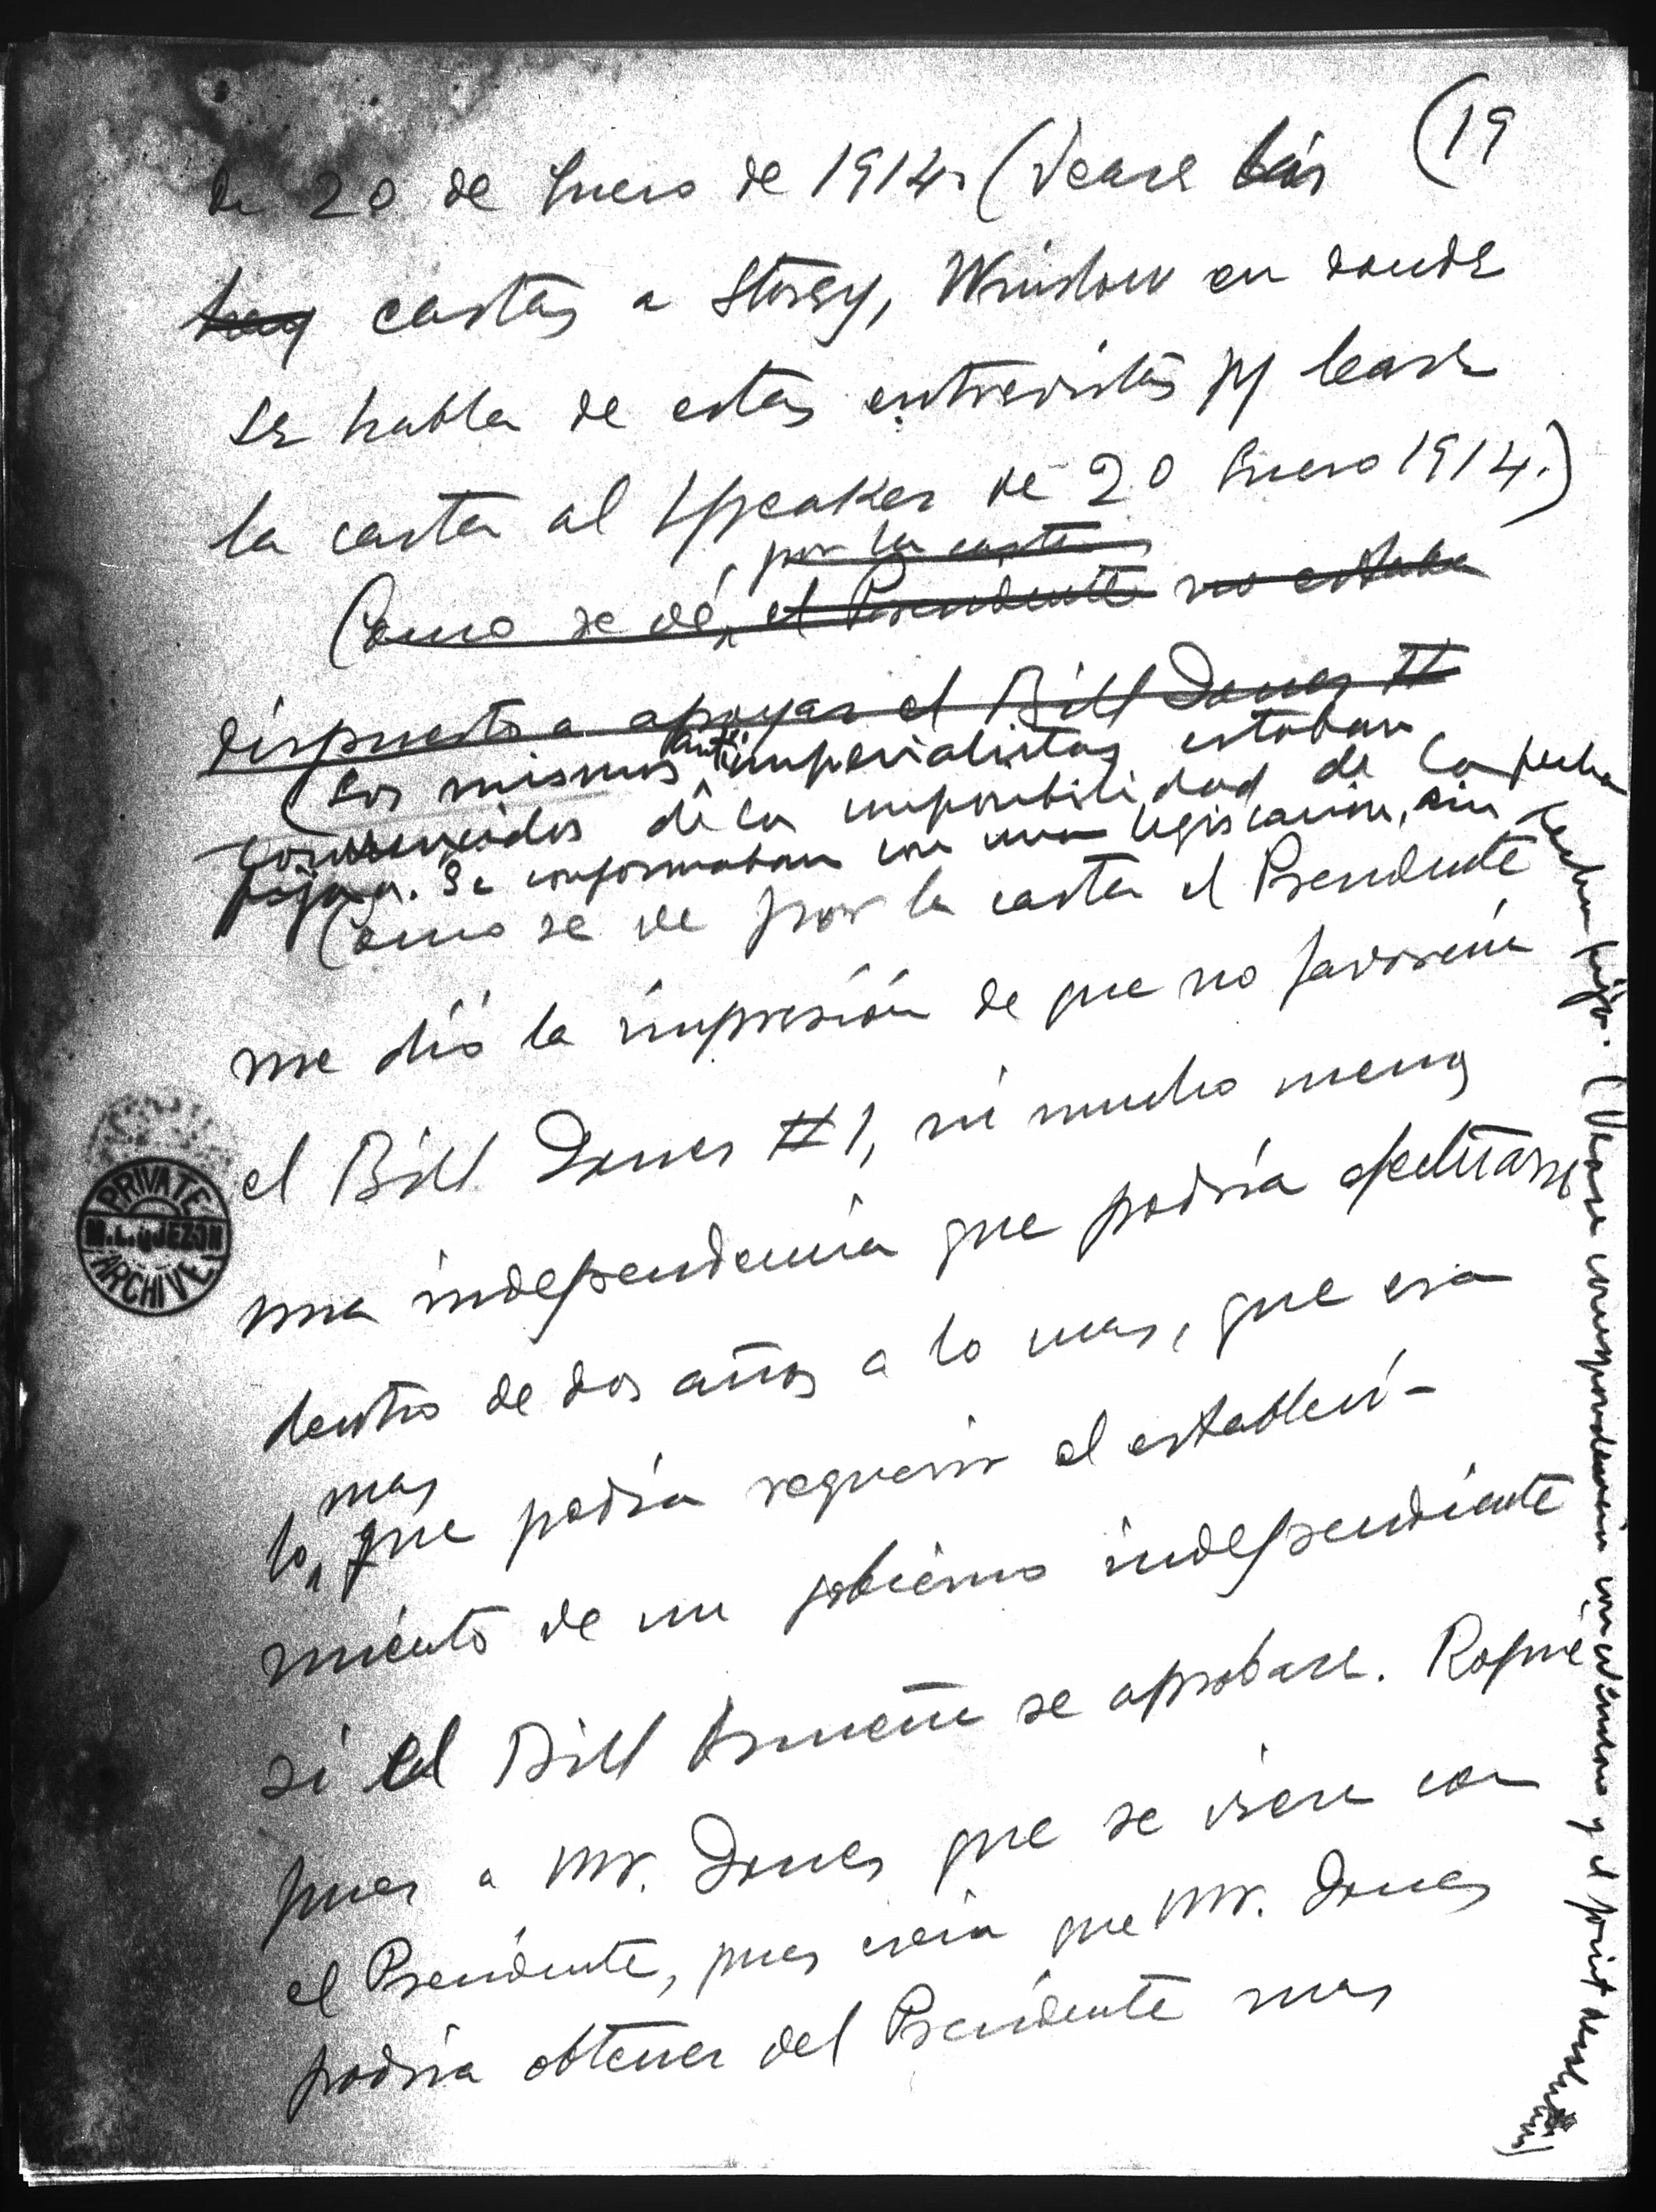 (19
de 20 de Enero de 1914. (Vease las
hay cartas a Storey, Winslow en donde
se habla de estas entrevistas y lease
la carta al Speaker de 20 Enero 1914.)
por la carta
Como se vé, el Presidente no estaba
dispuesto a apoyar el Bill Jones #
(Los mismos anti-imperialistas estaban
convencidos de la imposibilidad de la fecha
fija. Se conformaban con una legislacion, sin
fecha fija. (Vease correspondencia con Winslow y el joint
Como se ve por la carta el Presidente
me dió la impresión de que no favorecia
el Bill Jones #1, ni mucho menos
una independencia que podría efectuarse
dentro de dos años a lo mas, que era
mas
lo que podria requerir el estableci-
miento de un gobierno independiente
si el Bill se aprobase. Rogué
pues a Mr. Jones que se viera con
el Presidente, pues creia que Mr. Jones
podria obtener del Presidente mas
PRIVATE
M.L. QUEZON
ARCHIVE